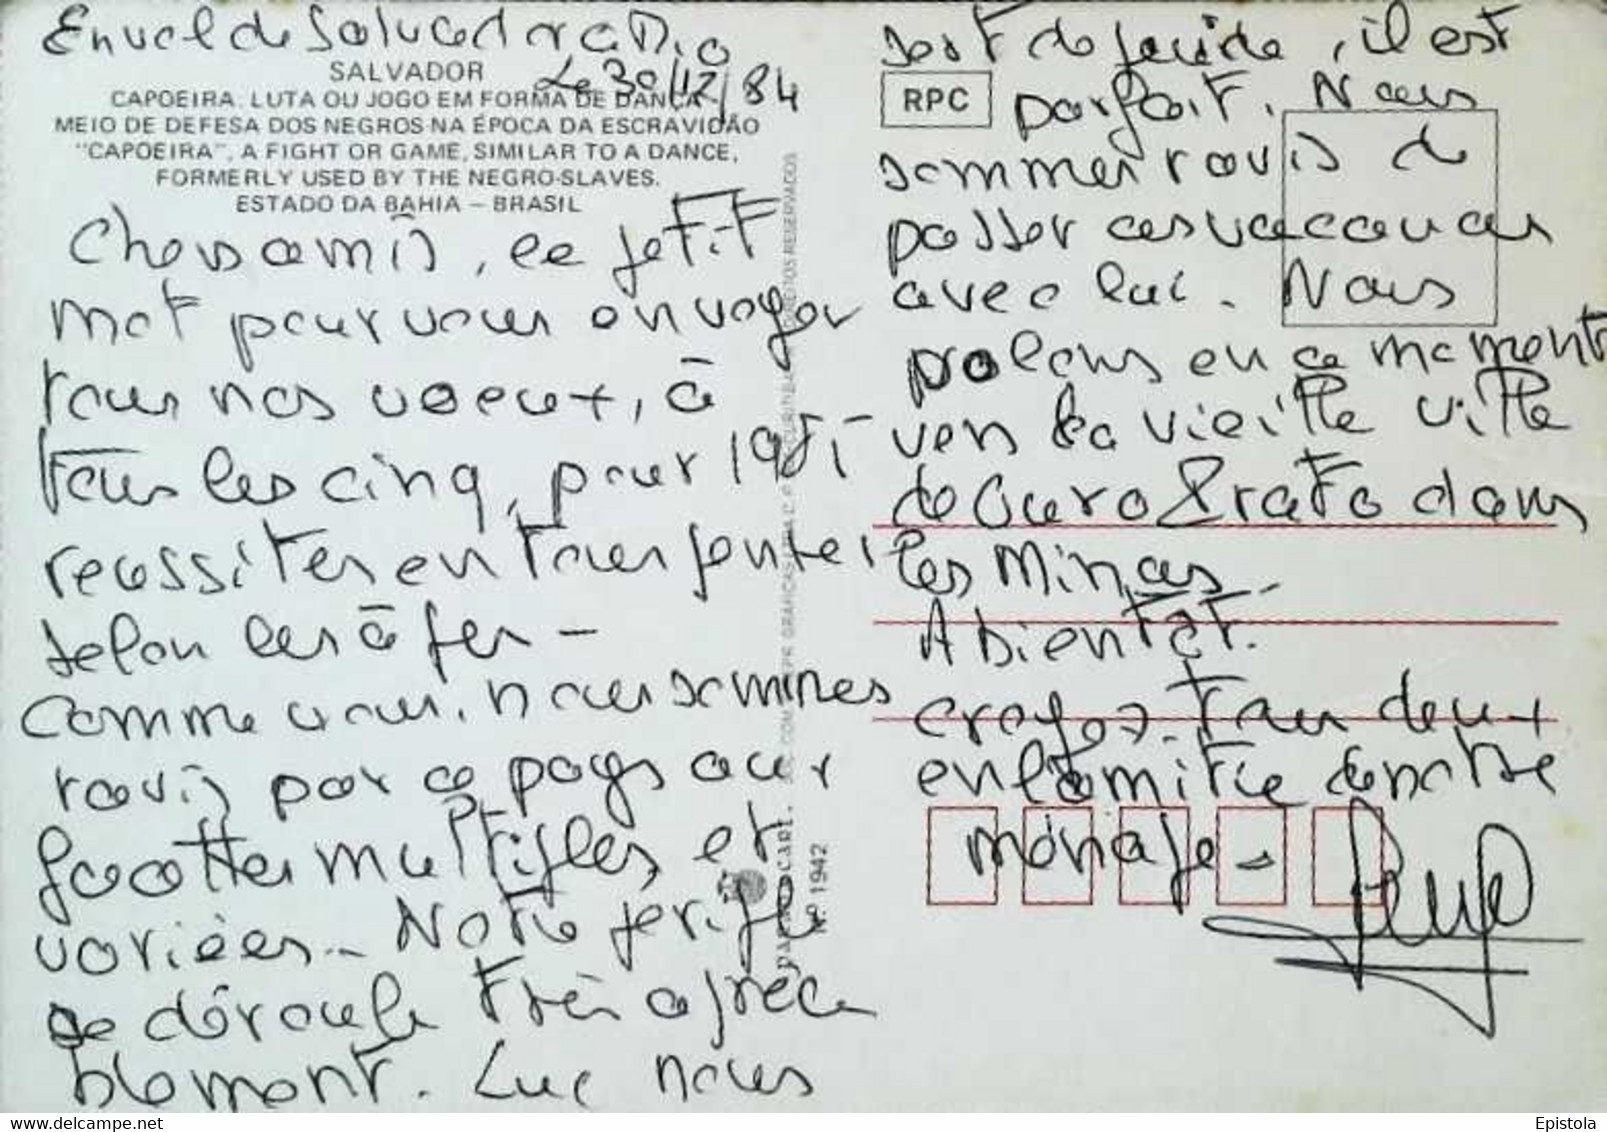 En vol de Salvador à Rio
Le 30/12/84
SALVADOR
CAPOEIRA: LUTA OU JOGO EM FORMA DE DANÇA
MEIO DE DEFESA DOS NEGROS NA ÉPOCA DA ESCRAVIDÃO
"CAPOEIRA", A FIGHT OR GAME, SIMILAR TO A DANCE,
FORMERLY USED BY THE NEGRO-SLAVES.
ESTADO DA BAHIA – BRASIL
Chers amis, ce petit
mot pour vous envoyer
tous nos voeux, à
tous les cinq, pour 1985
réussites en tous genres
selon les âges –
Comme vous, nous sommes
ravis par ce pays aux
facettes multiples et
variées – Notre périple
se déroule très agréa
blement. Luc nous
sert de guide, il est
parfait. Nous
sommes ravis de
passer ces vacances
avec lui. Nous
volons en ce moment
vers la vieille ville
de Ouro Prato dans
les Minas.
A bientôt.
croyez tous deux
en l'amitié de notre
ménage –
RPC
DIREITOS RESERVADOS
Nº 1942
Epistola
www.delcampe.net